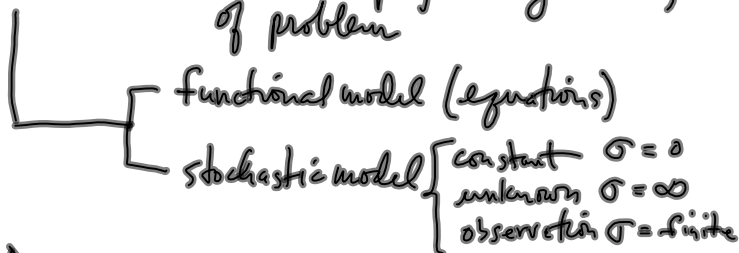 of problem
functional model (equations)
stochastic model
constant σ = 0
unknown σ = ∞
observation σ = finite